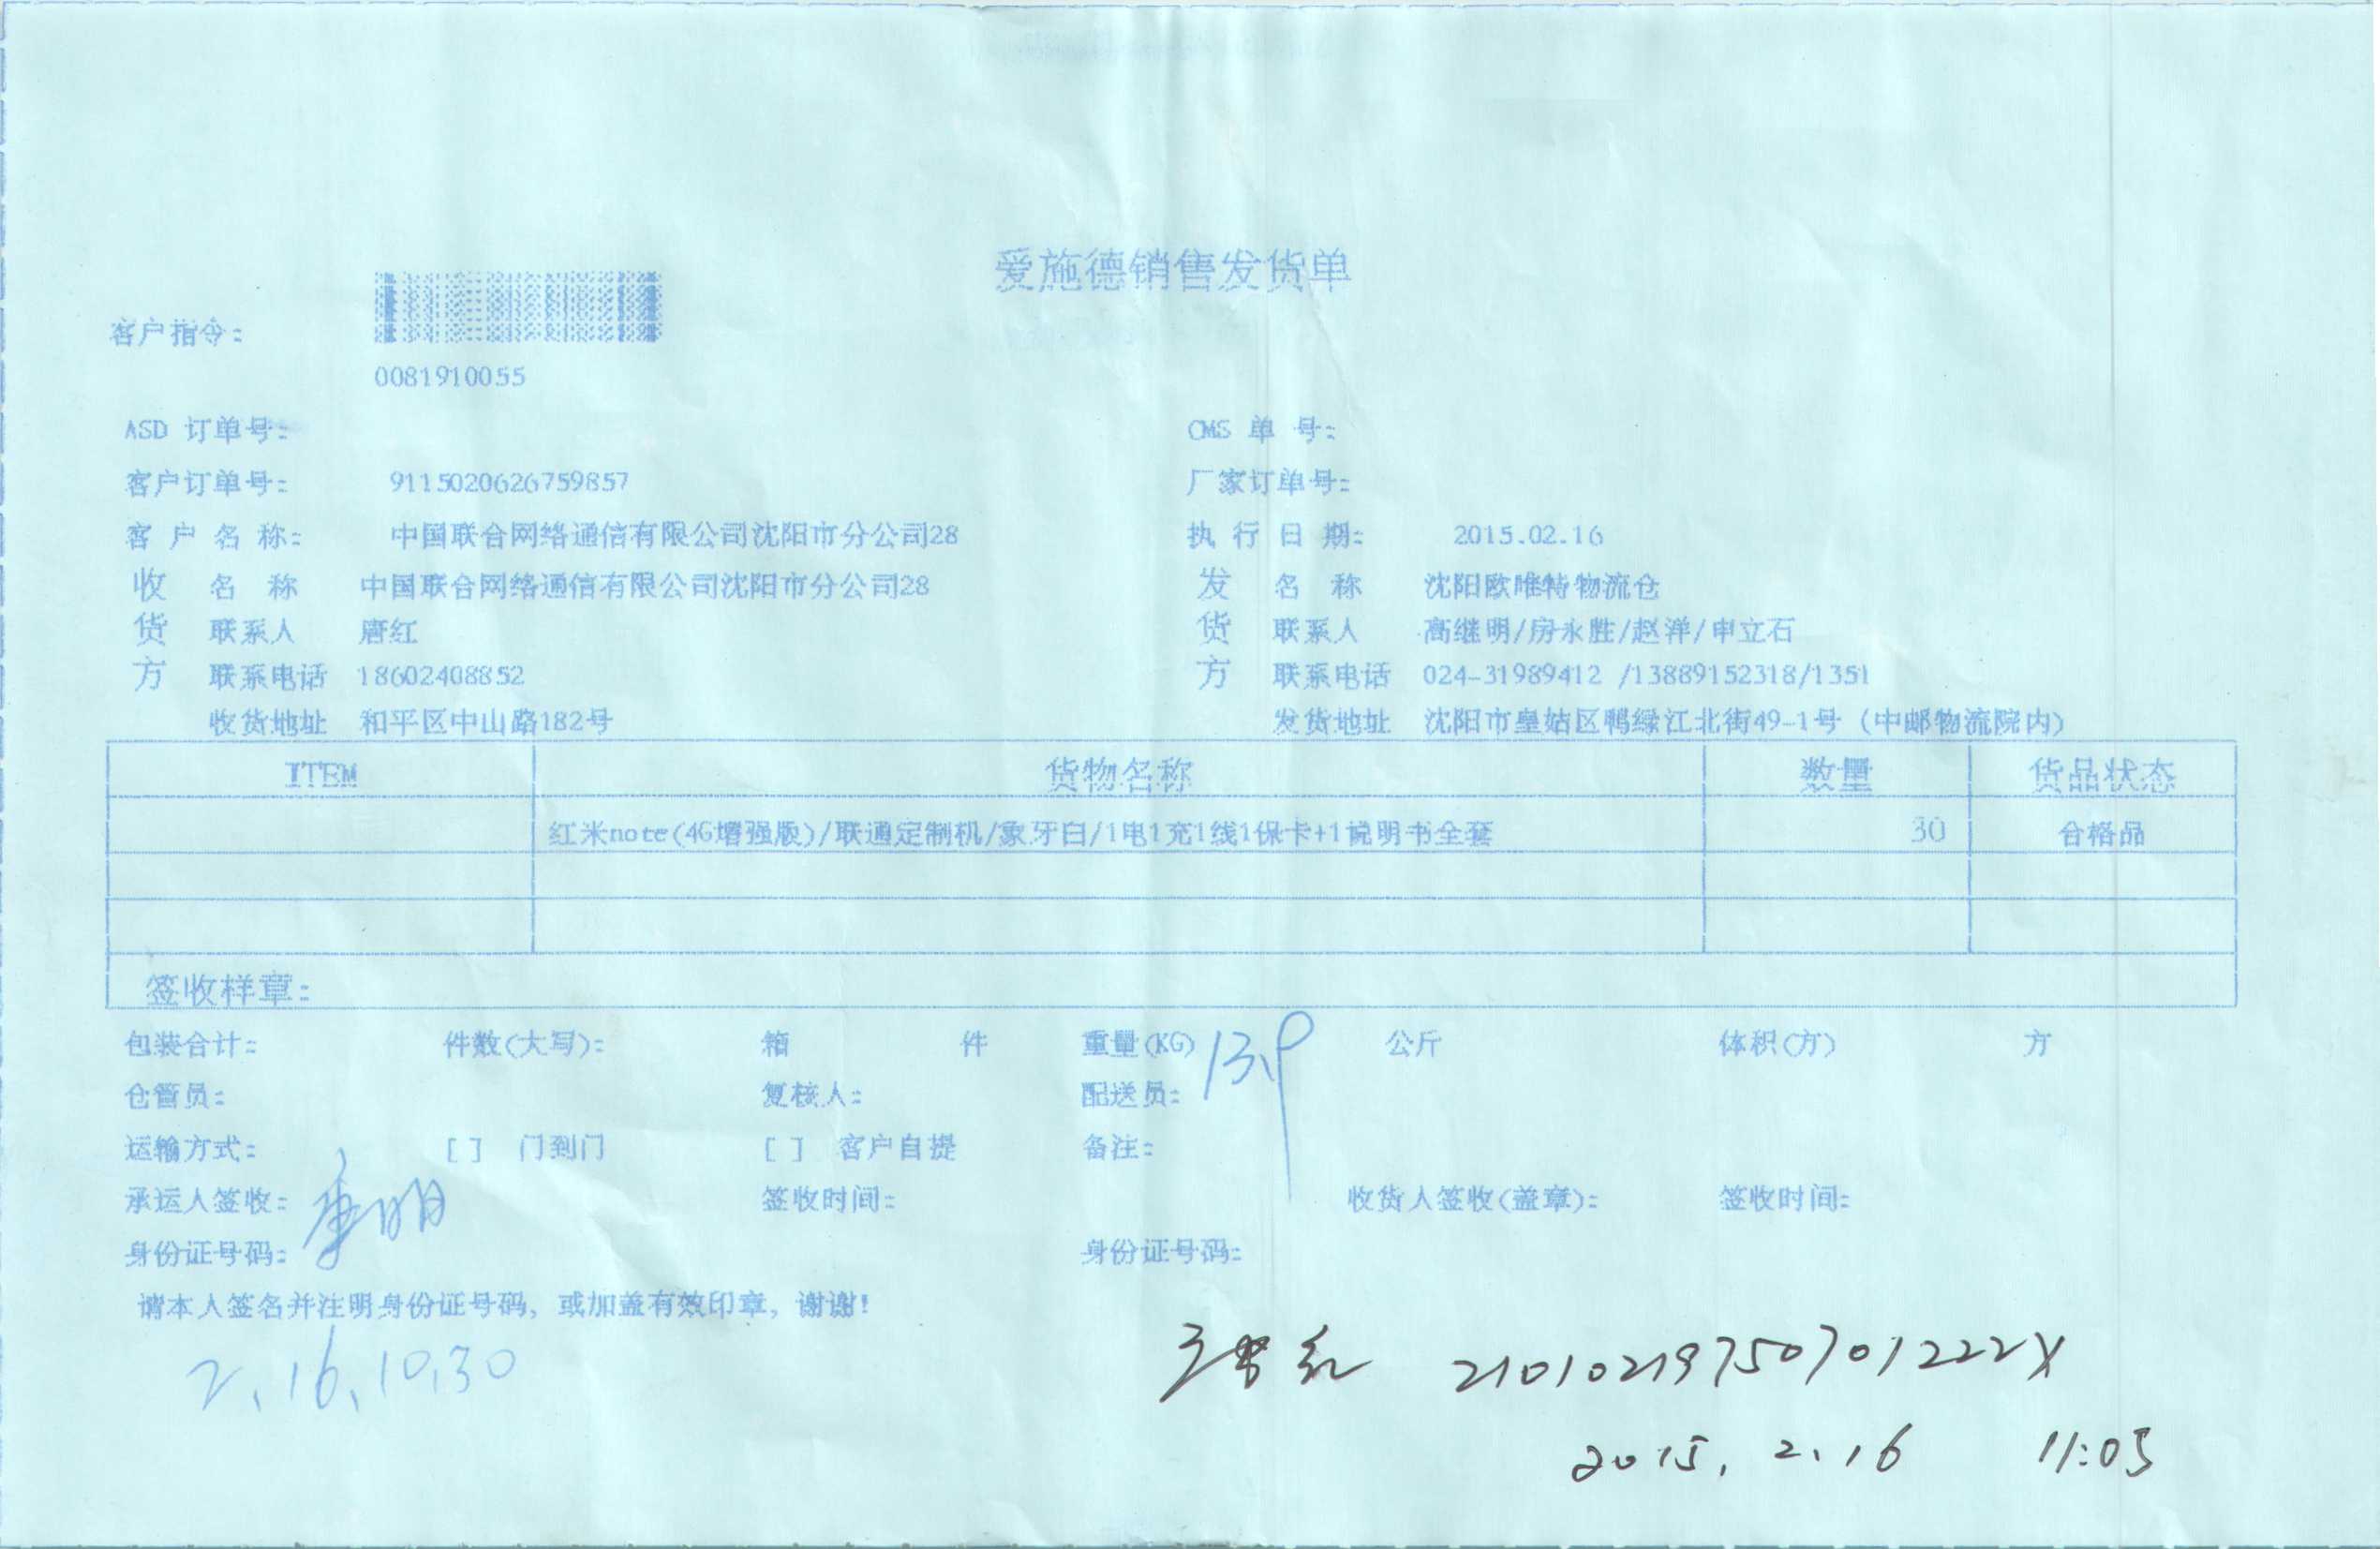 爱施德销售发货单
客户指令:
0081910055
ASD 订单号: CMS 单 号:
客户订单号: 9115020626759857 厂家订单号:
客 户 名 称: 中国联合网络通信有限公司沈阳市分公司28 执 行 日 期: 2015.02.16
收 名 称 中国联合网络通信有限公司沈阳市分公司28 发 名 称 沈阳欧唯特物流仓
货 联系人 唐红 货 联系人 高继明/房永胜/赵洋/申立石
方 联系电话 18602408852 方 联系电话 024-31989412 /13889152318/1351
收货地址 和平区中山路182号 发货地址 沈阳市皇姑区鸭绿江北街49-1号 (中邮物流院内)
ITEM 货物名称 数量 货品状态
红米note(4G增强版)/联通定制机/象牙白/1电1充1线1保卡+1说明书全套 30 合格品
签收样章:
包装合计: 件数(大写): 箱 件 重量(KG) 13.9 公斤 体积(方) 方
仓管员: 复核人: 配送员:
运输方式: [ ] 门到门 [ ] 客户自提 备注:
承运人签收: 签收时间: 收货人签收(盖章): 签收时间:
身份证号码: 身份证号码:
请本人签名并注明身份证号码, 或加盖有效印章, 谢谢!
2.16.10.30
唐红 21010219750701222X
2015.2.16 11:05